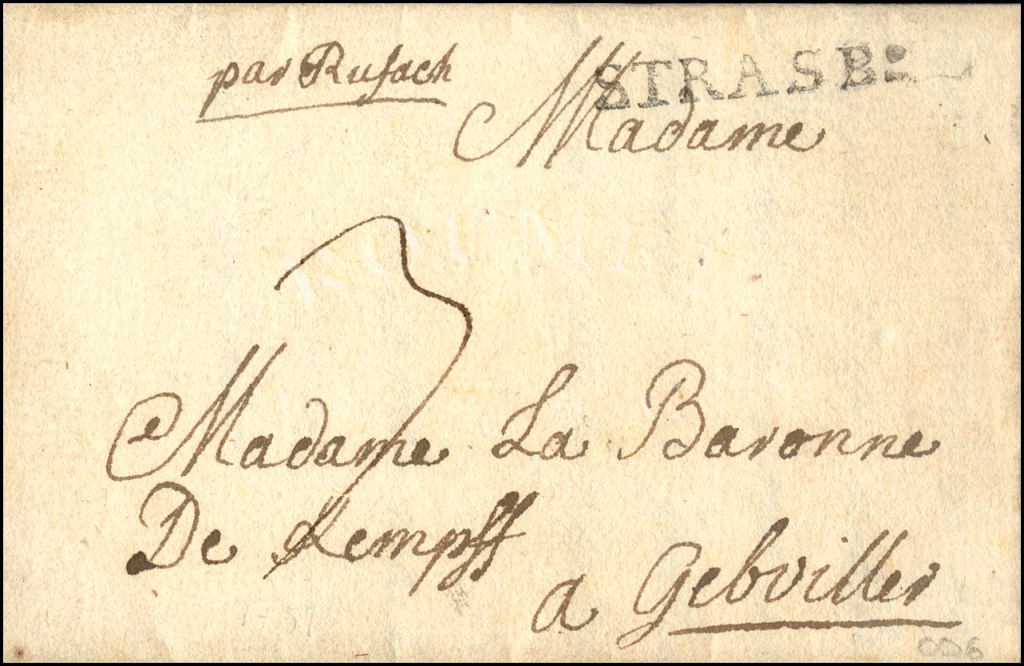 par Rufach
STRASBG
Madame
3
Madame La Baronne
De Kempff
a Gebviller